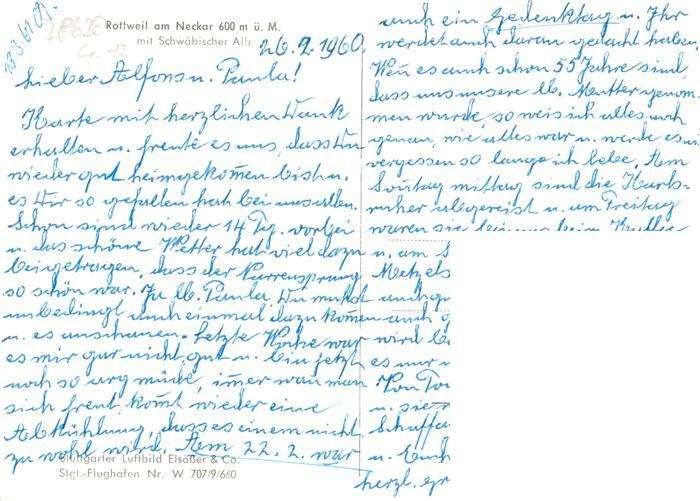 Rottweil am Neckar 600 m ü. M.
mit Schwäbischer Alb
26.2.1960.
Lieber Alfons u. Paula!
Karte mit herzlichen Dank
erhalten u. freute es uns, dass Du
wieder gut heimgekom̄en bist u.
es Dir so gefallen hat bei uns allen.
Schon sind wieder 14 Tg. vorbei
u. das schöne Wetter hat viel dazu
beigetragen, dass der Narrensprung
so schön war. Ja lb. Paula Du musst
unbedingt auch einmal dazu kom̄en
u. es anschauen. Letzte Woche war
es mir gar nicht gut u. bin jetzt
noch so arg müde, im̄er wan man
sich freut, kom̄t wieder eine
Abkühlung, dass es einem nicht
zu wohl wird. Am 22. 2. war
Stuttgarter Luftbild Elsäßer & Co.
Stgt.-Flughafen Nr. W 707/9/660
auch ein Gedenktag u. Ihr
werdet auch daran gedacht haben.
Wen̄ es auch schon 55 Jahre sind,
dass uns unsere lb. Mutter genom-
men wurde, so weis ich alles noch
genau, wie alles war u. werde es n.
vergessen so lange ich lebe. Am
Son̄tag mittag sind die Karls-
ruher abgereist u. am Freitag
waren sie
u. am S
Metzels
auch gu
auch g
wird
es nur
Von
u. sie
Schaffa
u. Euch
herzl. gr